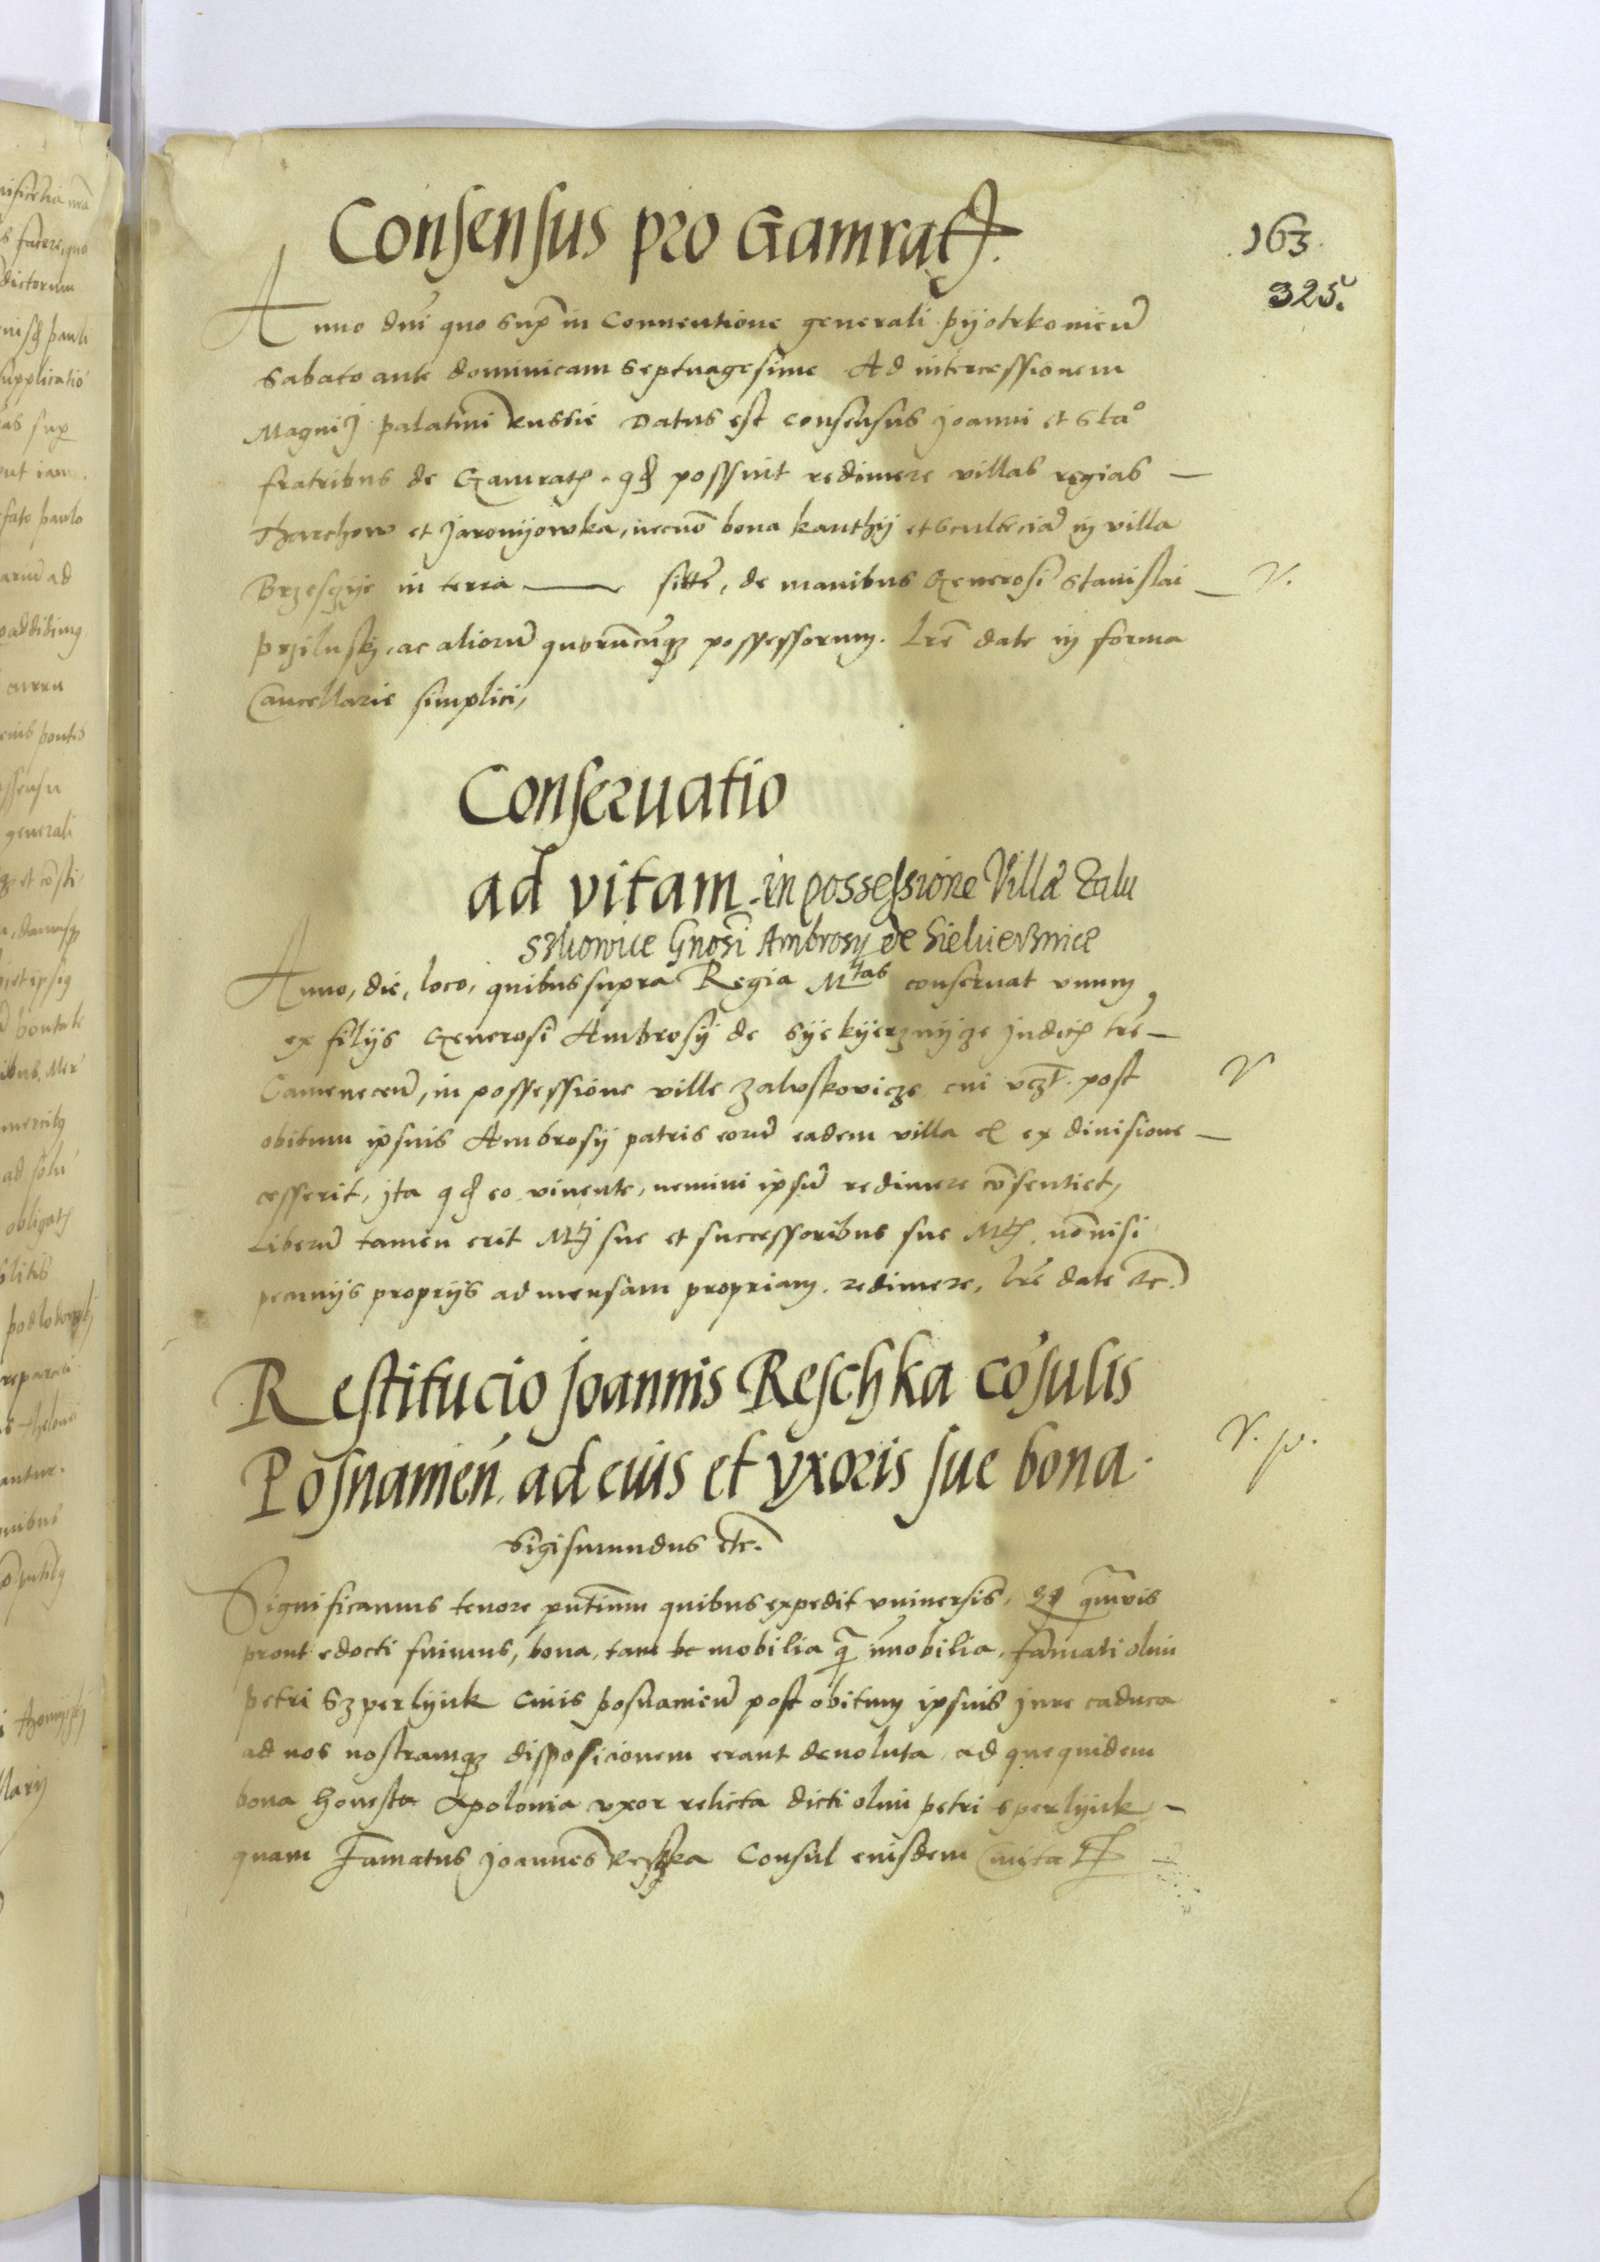 Consensus pro Gamratħ.
163.
325.
Anno dni quo sup in Conuentione generali pyotrkonien
Sabato ante dominicam Septuagesime Ad intercessionem
Magnifi palatini Russie Datus est consensus Joanni et Stao
fratribus de Gamrath. qd possint redimere villas regias —
Tharchow et Jaronyowka, necno bona kanthy et scultecia in villa
Brzesczye in terra —— sitte, de manibus Generosi Stanislai —
przilusky, ac aliorum quorucuqz possessorum. Lre date in forma
Cancellarie simplici,
V.
Conseruatio
ad vitam in possessione Villae Zalu
szkowice Gnosi Ambrosy de Siekierznice
Anno, die, loco, quibus supra Regia Mtas conseruat vnum
ex filijs Generosi Ambrosij de Syekyerznycze Judicis tre —
Camenecen, in possessione ville Zaluskovicze, cui vczt. post
obitum ipsius Ambrosij patris eorum eadem villa ex diuisione —
cesserit, jta qd eo viuente, nemini ipsum redimere cosentiet,
Liberum tamen erit Mti sue et successoribus sue Mtis, nonisi
pecunijs proprijs ad mensam propriam redimere, Lre date etc.
V
Restitucio Joannis Reschka cosulis
Posnamen. ad eius et vxoris sue bona.
V. p.
Sigismundus etc.
Significamus tenore pntium quibus expedit vniuersis, qd qmvis
prout edocti fuimus, bona, tam mobilia q immobilia, famati olim
petri Szperlynk Ciuis posnamien post obitum ipsius jure caduca
ad nos nostramqz disposicionem erant deuoluta, ad que quidem
bona honesta Apolonia vxor relicta dicti olim petri sperlynk —
quam famatus Joannes Reszka Consul eiusdem Ciuita